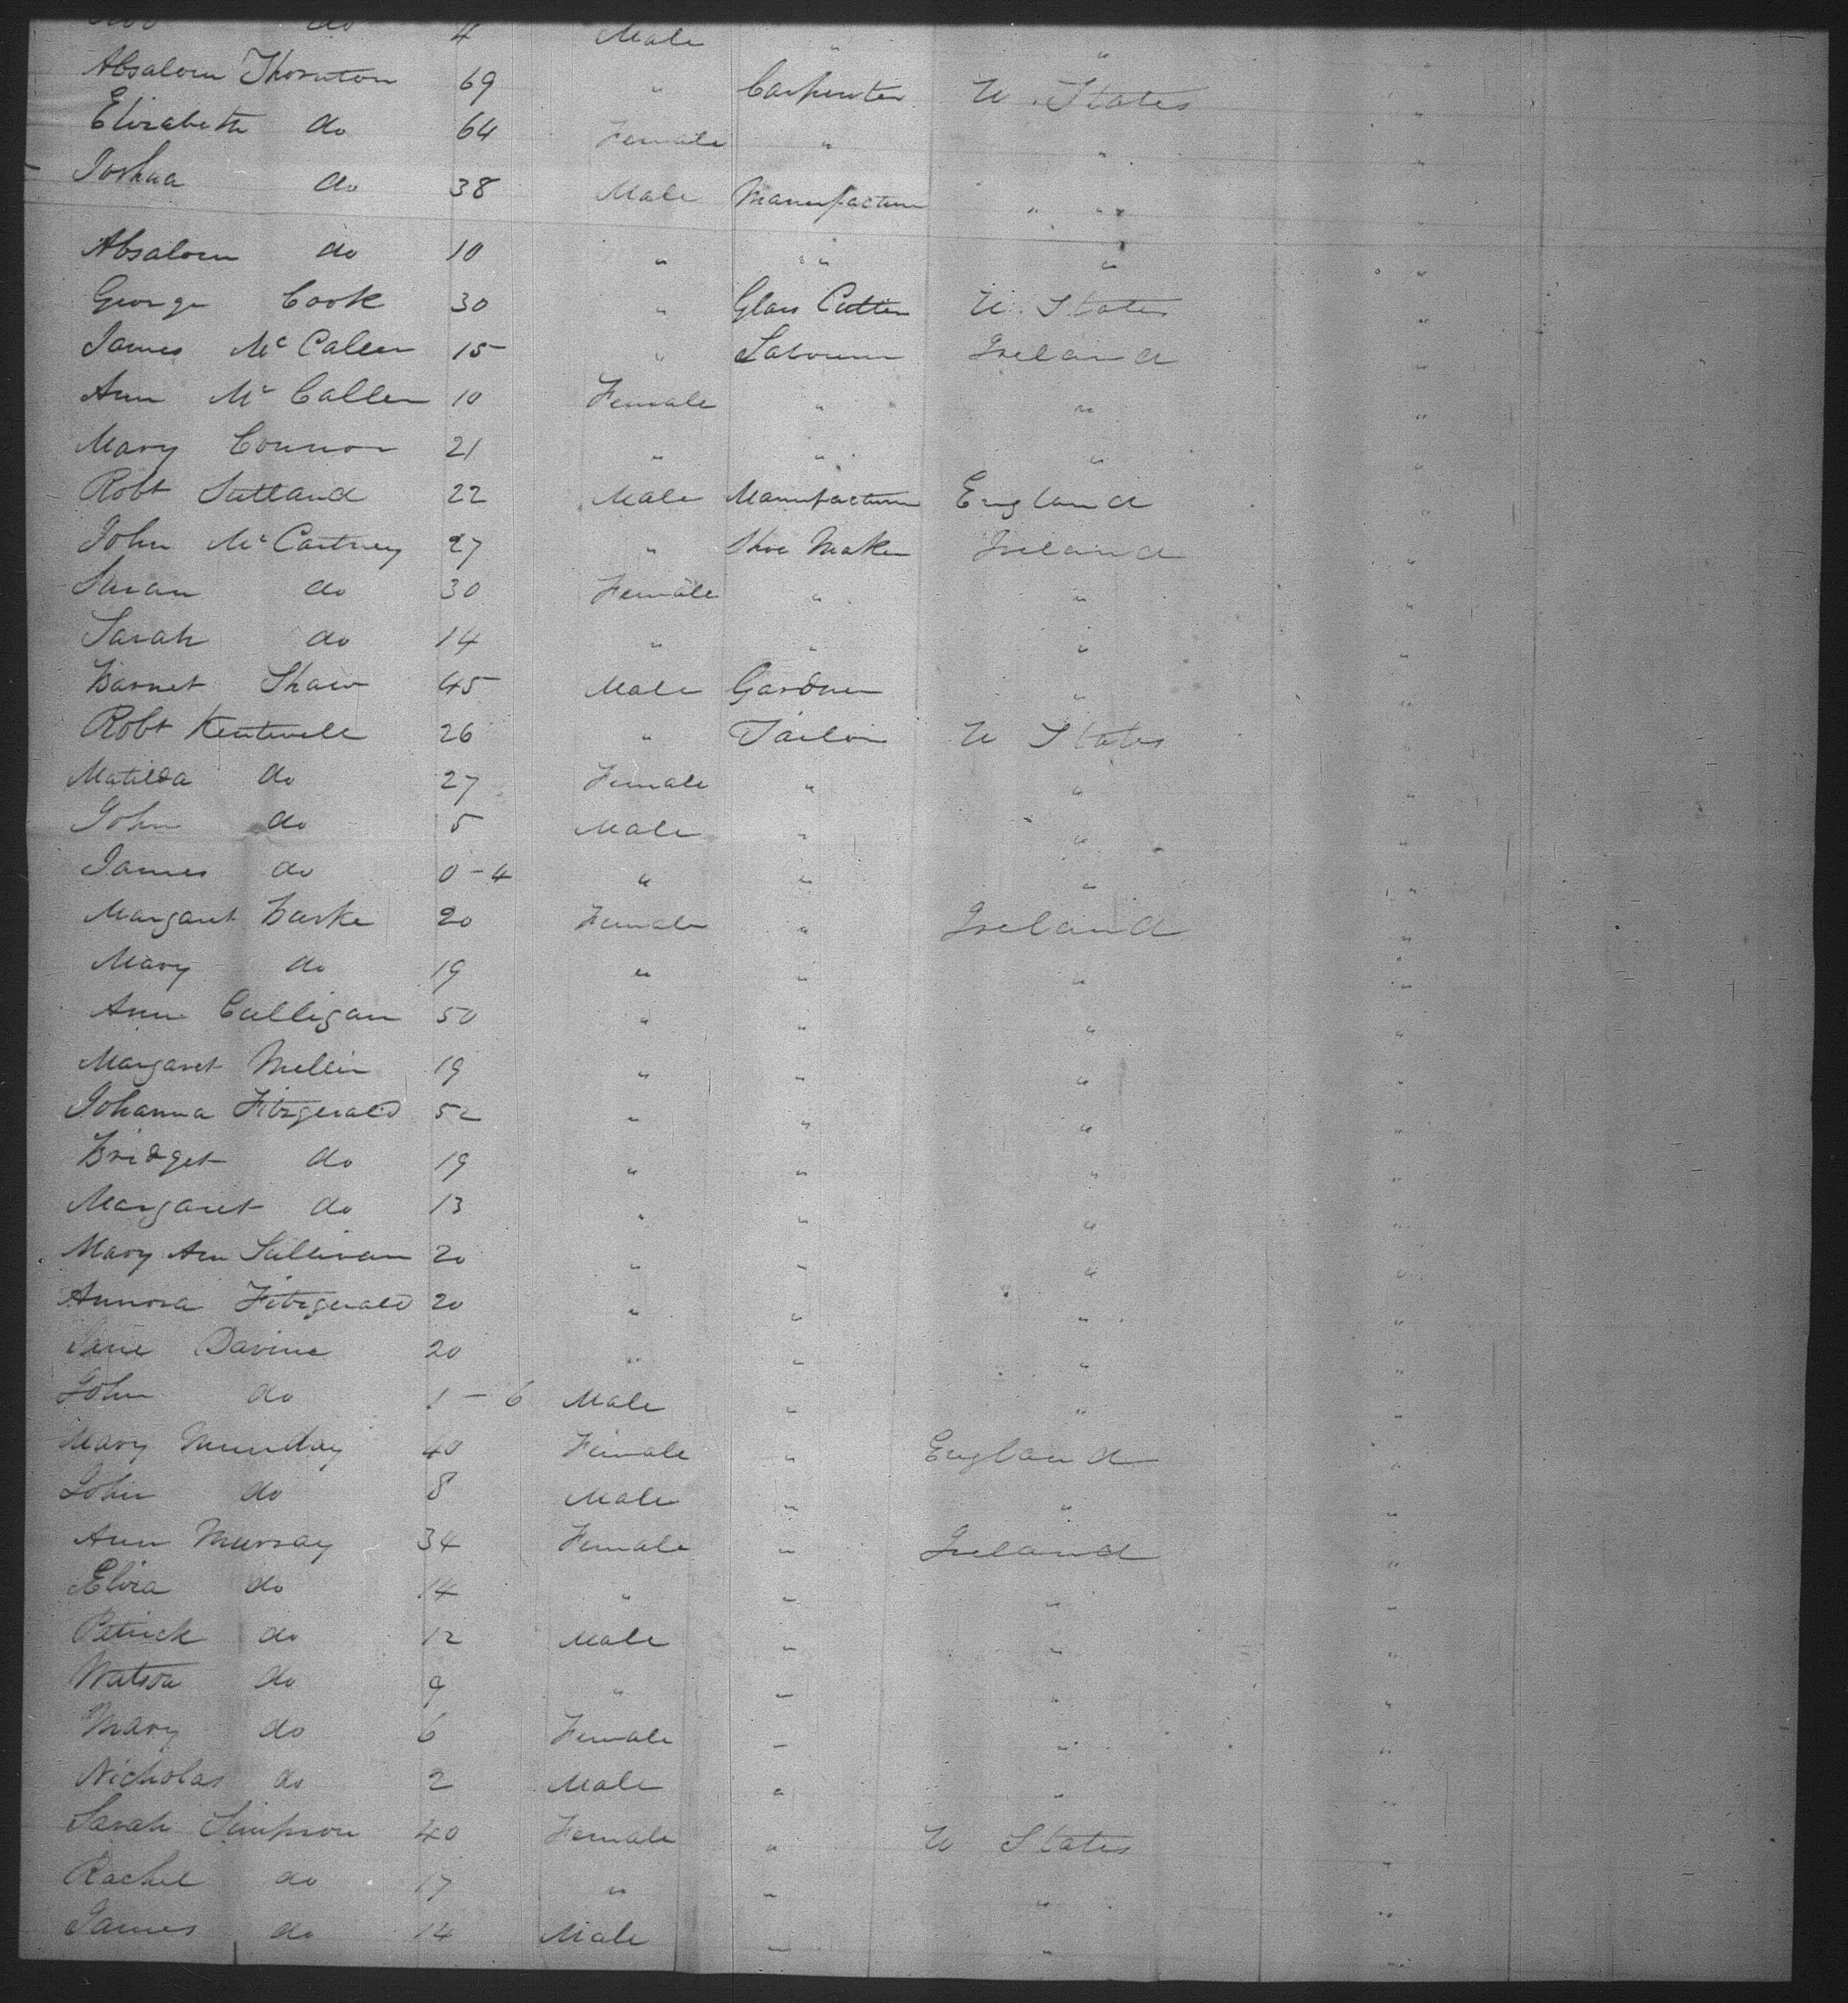 do 4 Male " "
Absalom Thornton 69 " Carpenter U. States "
Elizabeth do 64 Female " " "
Joshua do 38 Male Manufacturer " " "
Absalom do 10 " " " "
George Cook 30 " Glass Cutter U. States "
James McCaller 15 " Labourer Ireland "
Ann McCaller 10 Female " " "
Mary Connor 21 " " " "
Robt Sutland 22 Male Manufacturer England "
John McCartney 27 " Shoe Maker Ireland "
Susan do 30 Female " " "
Sarah do 14 " " " "
Barnet Shaw 45 Male Gardner " "
Robt Kentwell 26 " Tailor U States "
Matilda do 27 Female " " "
John do 5 Male " " "
James do 0-4 " " " "
Margaret Burke 20 Female " Ireland "
Mary do 19 " " " "
Ann Culligan 50 " " " "
Margaret 19 " " " "
Johanna Fitzgerald 52 " " " "
Bridget do 19 " " " "
Margaret do 13 " " " "
Mary Ann Sullivan 20 " " " "
Annora Fitzgerald 20 " " " "
Jane Davine 20 " " " "
John do 1-6 Male " " "
Mary Munday 40 Female " England "
John do 8 Male " " "
Ann Murray 34 Female " Ireland "
Eliza do 14 " " " "
Patrick do 12 Male " " "
do 9 " " " "
Mary do 6 Female " " "
Nicholas do 2 Male " " "
Sarah Simpson 40 Female " U States "
Rachel do 17 " " " "
James do 14 Male " " "